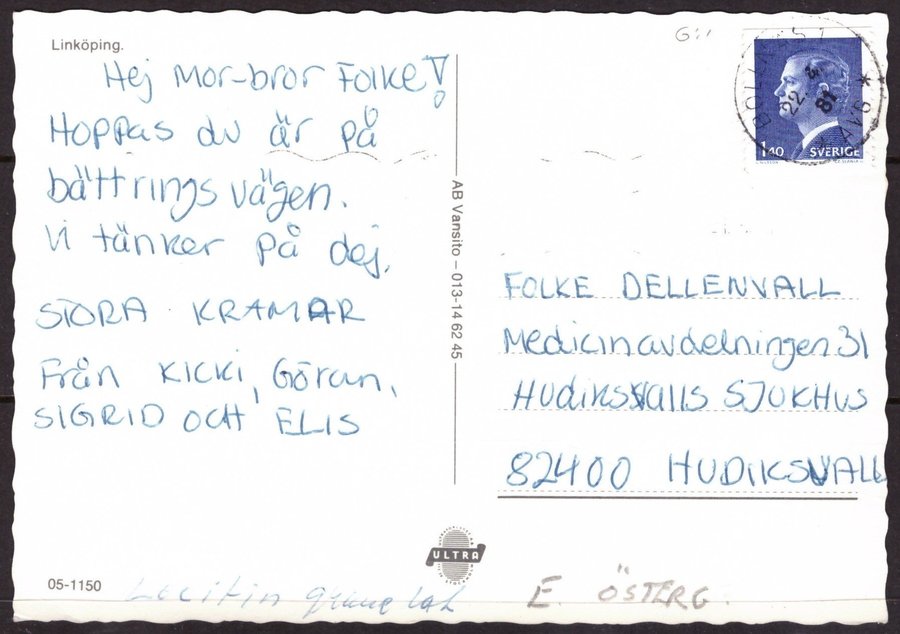 Linköping.
Hej Mor-bror Folke!
Hoppas du är på
bättringsvägen.
Vi tänker på dej.
STORA KRAMAR
Från KICKI, Göran,
SIGRID OCH ELIS
AB Vansito – 013-14 62 45
22 4 81
1.40 SVERIGE
FOLKE DELLENVALL
Medicinavdelningen 31
Hudiksvalls SJUKHUS
82400 HUDIKSVALL
ULTRA
05-1150
Lecitin
E. ÖSTERG.